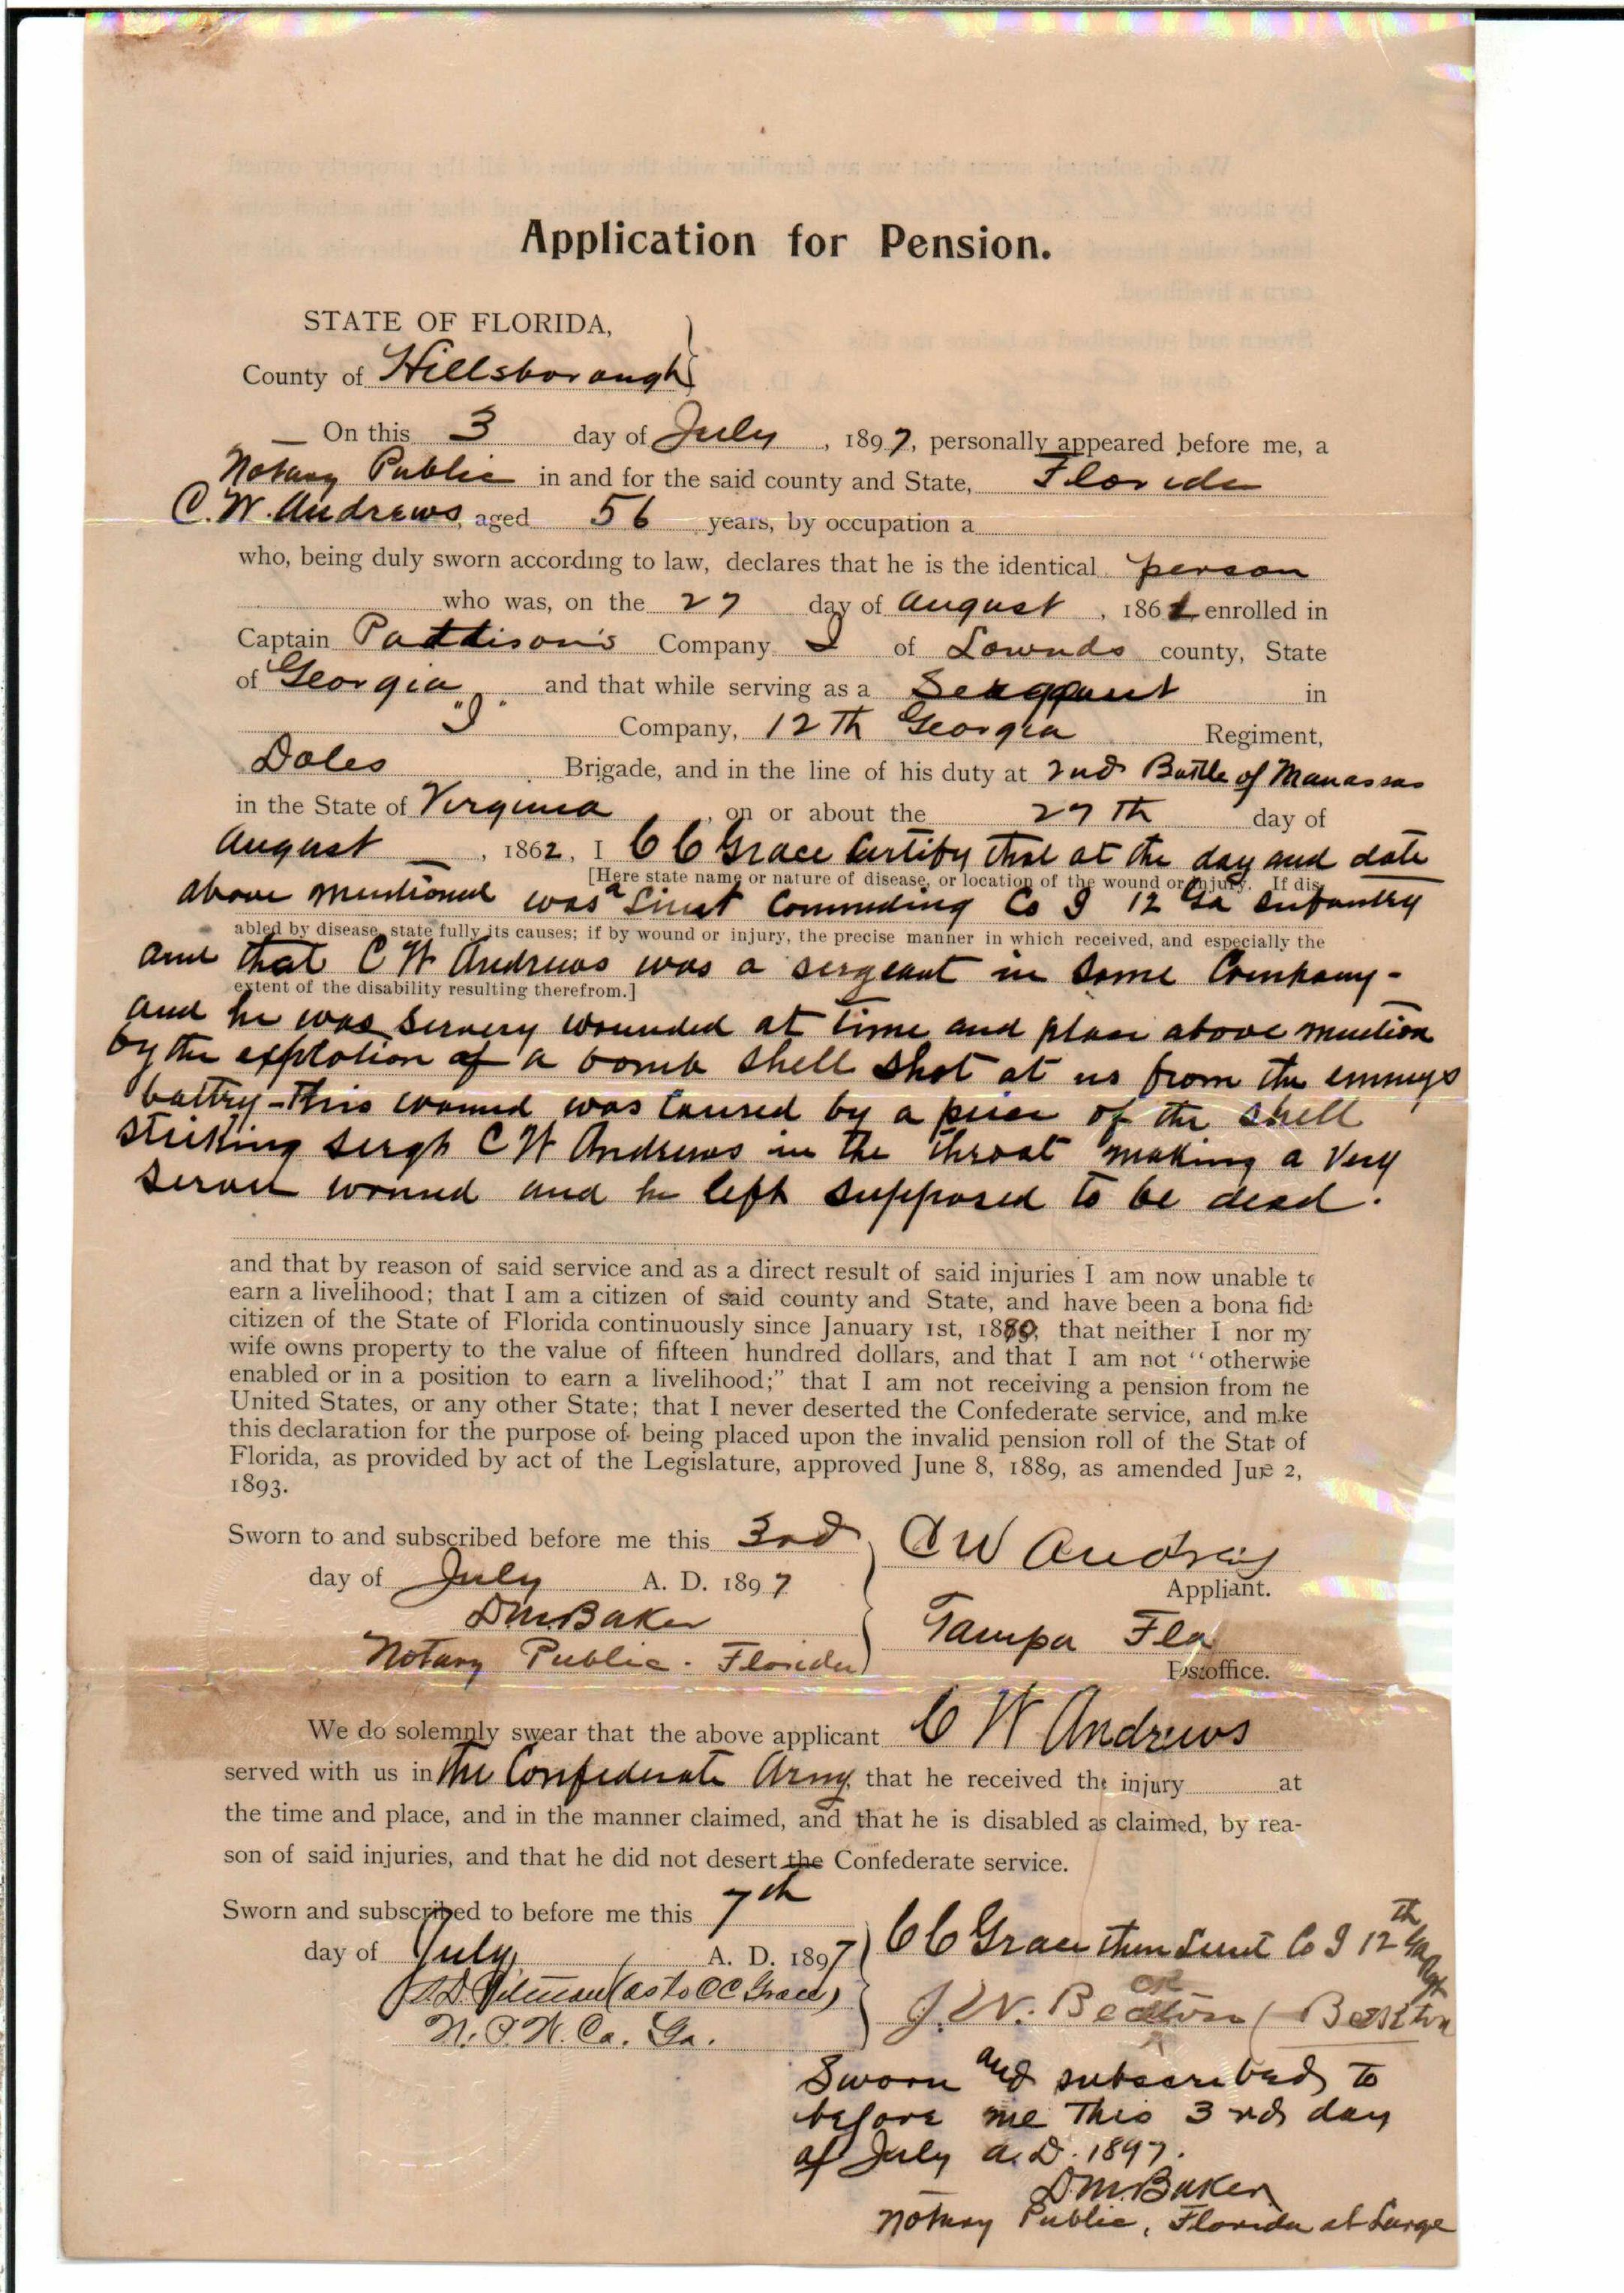 Application for Pension.
STATE OF FLORIDA,
County of Hillsborough
On this 3 day of July, 1897, personally appeared before me, a
Notary Public in and for the said county and State, Florida
C. W. Andrews, aged 56 years, by occupation a
who, being duly sworn according to law, declares that he is the identical person
who was, on the 27 day of August, 1861 enrolled in
Captain Pattison's Company I of Lownds county, State
of Georgia and that while serving as a Sergeant in
"I" Company, 12 Th Georgia Regiment,
Doles Brigade, and in the line of his duty at 2nd Battle of Manassas
in the State of Virginia, on or about the 27 Th day of
August, 1862, I C C Grace Certify that at the day and date
[Here state name or nature of disease, or location of the wound or injury. If dis-
above mentioned was a Lieut Commding Co I 12 Ga Infantry
abled by disease, state fully its causes; if by wound or injury, the precise manner in which received, and especially the
and that C W Andrews was a sergeant in same Company-
extent of the disability resulting therefrom.]
and he was wounded at time and place above mention
by the explotion of a bomb shell shot at us from the enmeys
battry - this wound was caused by a piece of the shell
striking C W Andrews in the throat making a very
wound and he left supposed to be dead.
and that by reason of said service and as a direct result of said injuries I am now unable to
earn a livelihood; that I am a citizen of said county and State, and have been a bona fide
citizen of the State of Florida continuously since January 1st, 1880; that neither I nor my
wife owns property to the value of fifteen hundred dollars, and that I am not "otherwise
enabled or in a position to earn a livelihood;" that I am not receiving a pension from the
United States, or any other State; that I never deserted the Confederate service, and make
this declaration for the purpose of being placed upon the invalid pension roll of the State of
Florida, as provided by act of the Legislature, approved June 8, 1889, as amended June 2,
1893.
Sworn to and subscribed before me this 3rd
day of July A. D. 1897
D M Baker
Notary Public - Florida
C W Andrews
Applicant.
Tampa Fla
Postoffice.
We do solemnly swear that the above applicant C W Andrews
served with us in the Confederate Army, that he received the injury at
the time and place, and in the manner claimed, and that he is disabled as claimed, by rea-
son of said injuries, and that he did not desert the Confederate service.
Sworn and subscribed to before me this 7th
day of July, A. D. 1897
(as to C C Grace)
N. P. W. Co. Ga.
C C Grace then Lieut Co I 12th Ga Rgt
J. W. or
Sworn and subscribed to
before me this 3rd day
of July A. D. 1897.
D M. Baker
Notary Public, Florida at Large